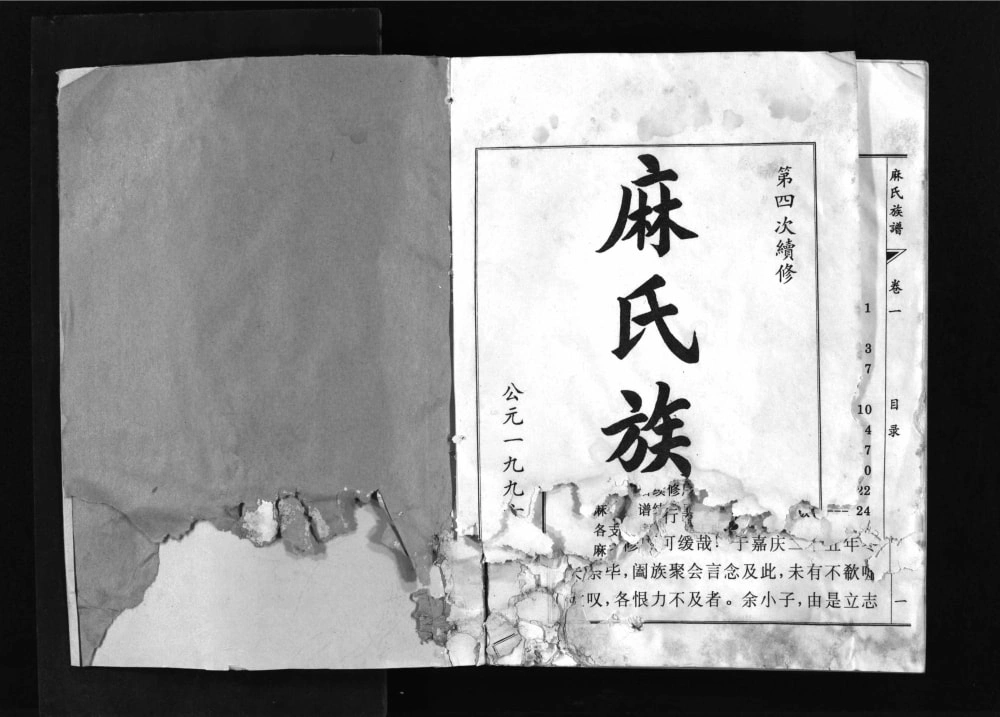 第四次續修
麻氏族
公元一九九
麻氏族譜
卷一
目录
一
1
3
7
10
4
7
0
22
24
修
谱
行
麻
各支
麻
修 可缓哉!于嘉庆二 年
毕,阖族聚会言念及此,未有不欷
叹,各恨力不及者。余小子,由是立志